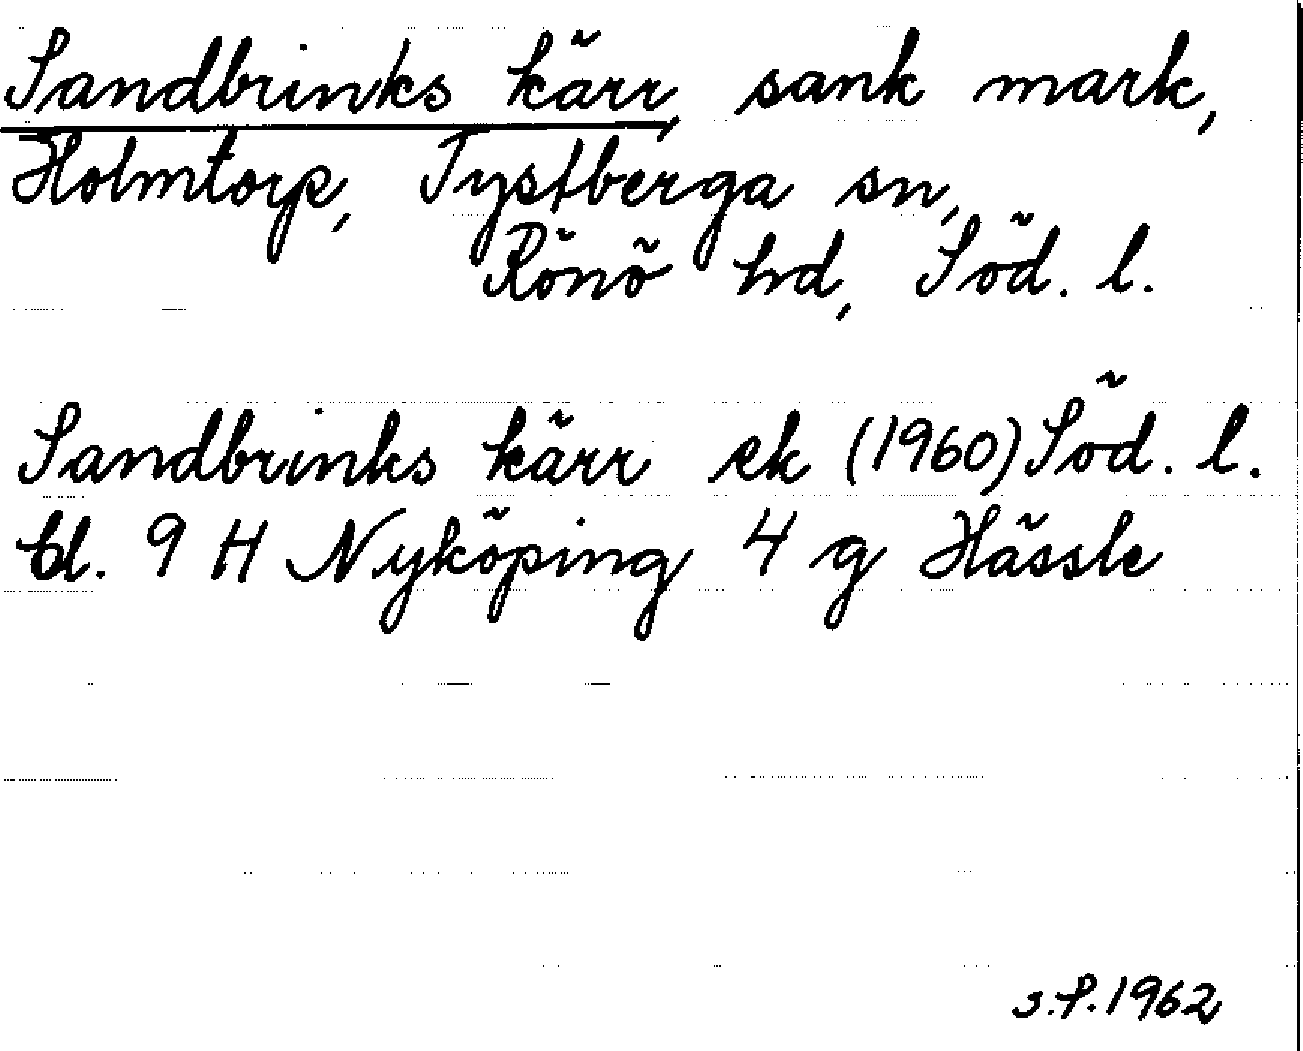 Sandbrinks kärr, sank mark,
Holmtorp, Tystberga sn,
Rönö hd, Söd. l.
Sandbrinks kärr ek (1960) Söd. l.
bl. 9 H Nyköping 4 g Hässle
s.f. 1962